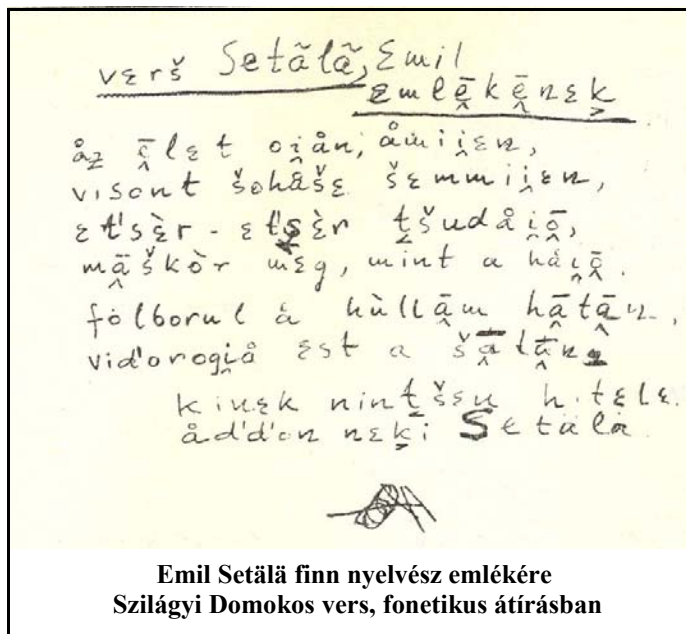 vɛrš Setälä, Emil
ɛmlē̬kē̬nɛk̬
åz ē̬lɛt oi̬ån, åmii̬ɛn,
visont šohåšɛ šɛmmii̬ɛn,
ɛt'sèr - ɛt'sèr t̬šudåi̬ō̬,
mā̬škòr mɛg, mint a håi̬ō̬.
fölborul å hùllā̬m hā̬tā̬n,
vid'orogi̬å ɛst a šā̬tā̬n,
kinɛk nint̬šɛn hitɛlɛ.
åd'd'on nɛk̬i Setälä.
Emil Setälä finn nyelvész emlékére
Szilágyi Domokos vers, fonetikus átírásban